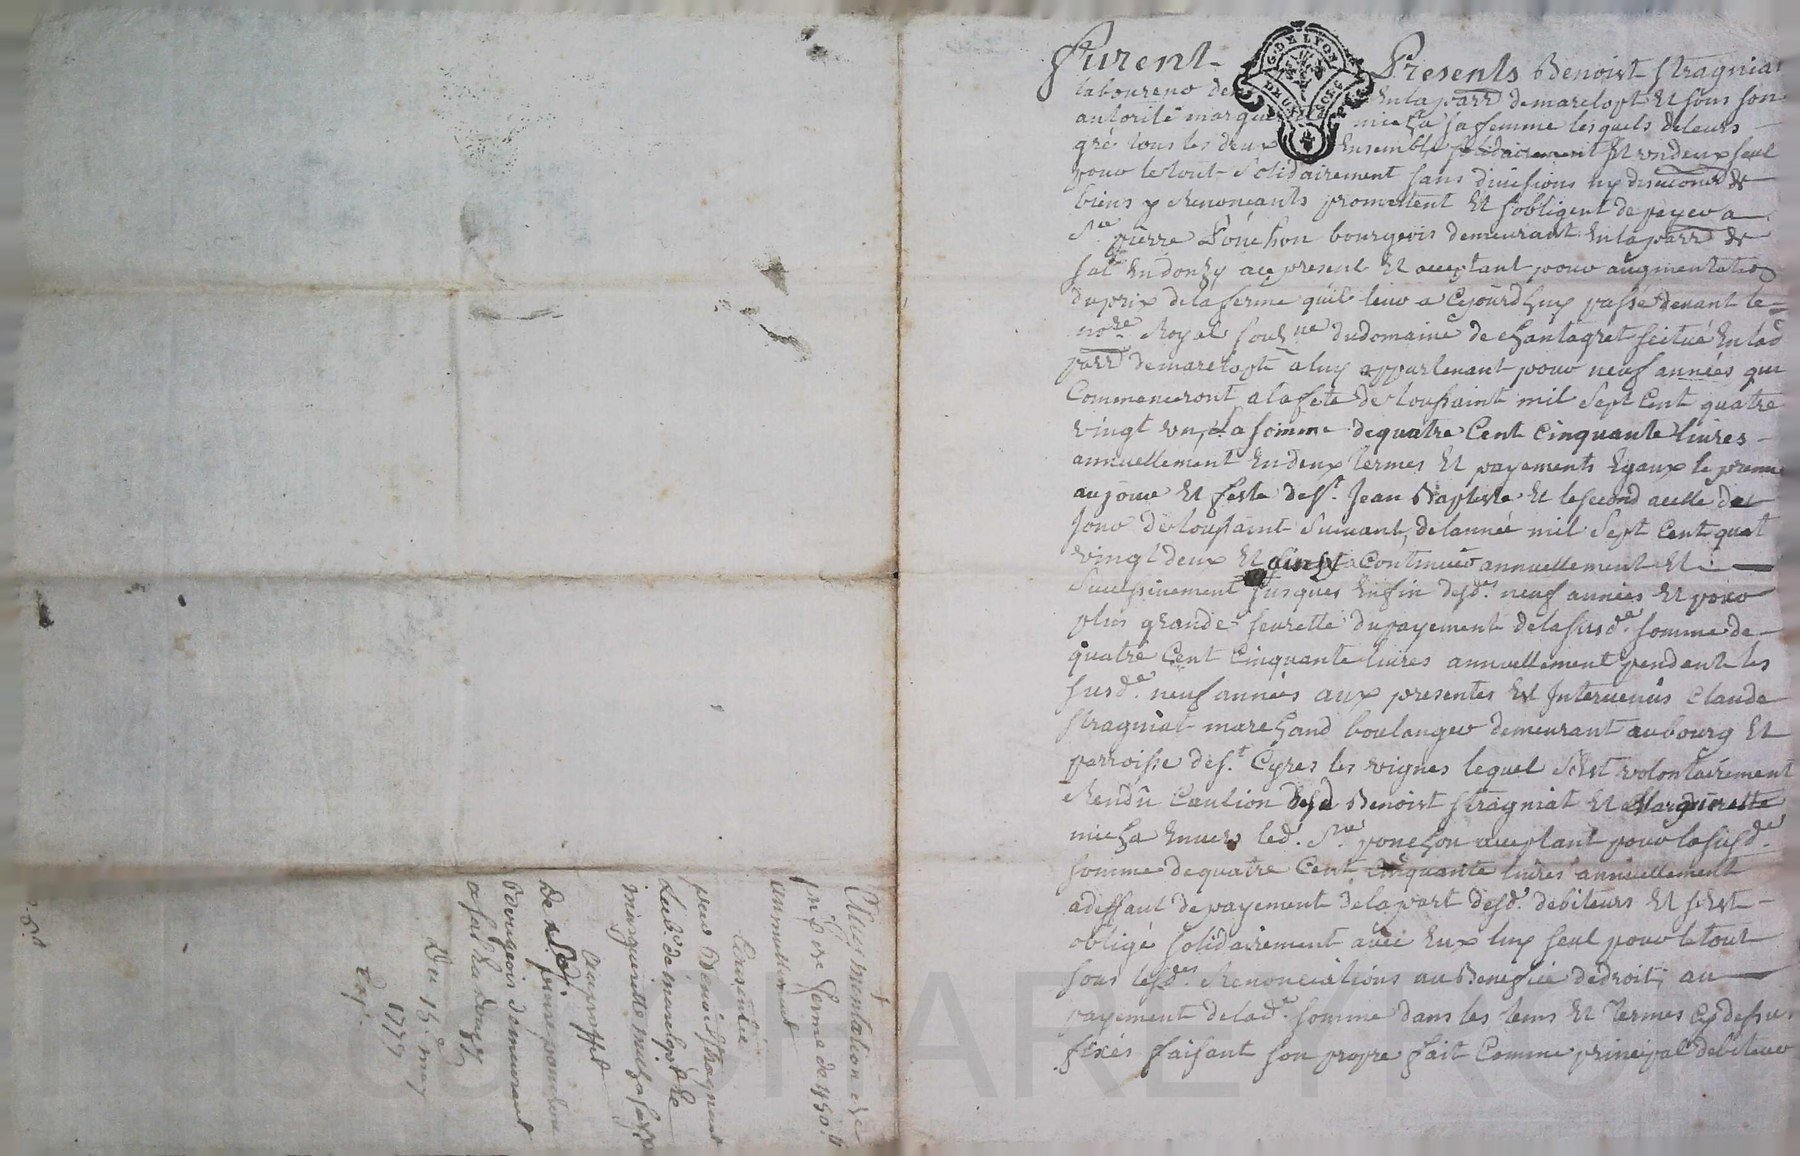 Furent Presents Benoist Stragniat
laboureur de en la parr. de mareloptt Et sous son
autorité margue micha sa femme lesquels de leurs
gré tous les deux Ensemble solidairement Et un deux seul
pour le tout solidairement sans divisions ny discutions de
biens y Renonçants promettent Et s'obligent de payer a
Sr. pierre Ponchon bourgeois demeurant En la parr. de
salt En donzy acy present Et acceptant pour augmentation
du prix de la ferme quil leur a Cejourdhuy passé devant le
nore. Royal soub.ne du domaine de Chantagret scitué En lad
parr. de mareloptt a luy appartenant pour neuf années qui
Commenceront a la fete de toussaint mil Sept Cent quatre
vingt un, La somme de quatre Cent Cinquante livres
annuellement En deux termes Et payements Egaux le premier
au jour Et feste de St. Jean Baptiste Et le second a celle de
jour de toussaint suivant, de l'année mil Sept Cent quat
vingt deux Et ainsy a Continuer annuellement Et
Successivement jusques Enfin desd. neuf années Et pour
plus grande seurette du payement de la susd.e somme de
quatre Cent Cinquante livres annuellement pendent les
susd.e neuf années aux presentes Est Intervenûs Claude
Stragniat marchand boulanger demeurant au bourg Et
parroisse de St. Cyres les vignes lequel s'Est volontairement
Rendû Caution desd Benoist Stragniat Et Marguerette
micha Envers led. Sr. ponchon acceptant pour la susd.e
somme de quatre Cent Cinquante livres annuellement
a deffaut de payement de la part desd. debiteurs Et s'Est
obligé solidairement avec Eux luy seul pour le tout
sous lesd.es Renonciations au Benefice de droit, au
payement de lad.e somme dans les tems Et termes Cy dessus
fixés faisant son propre fait Comme principal debiteur
G. DE LYON
Augmentation de
prix de ferme de 450 tt
annuellement
Consentie
par Benoist Stragniat
Lab.r de mareloptt Et
marguerette micha sa fe
au proffit
De Sr. pierre ponchon
Bourgeois demeurant
a salt En donzy
Du 15.e may
1779
Exp.